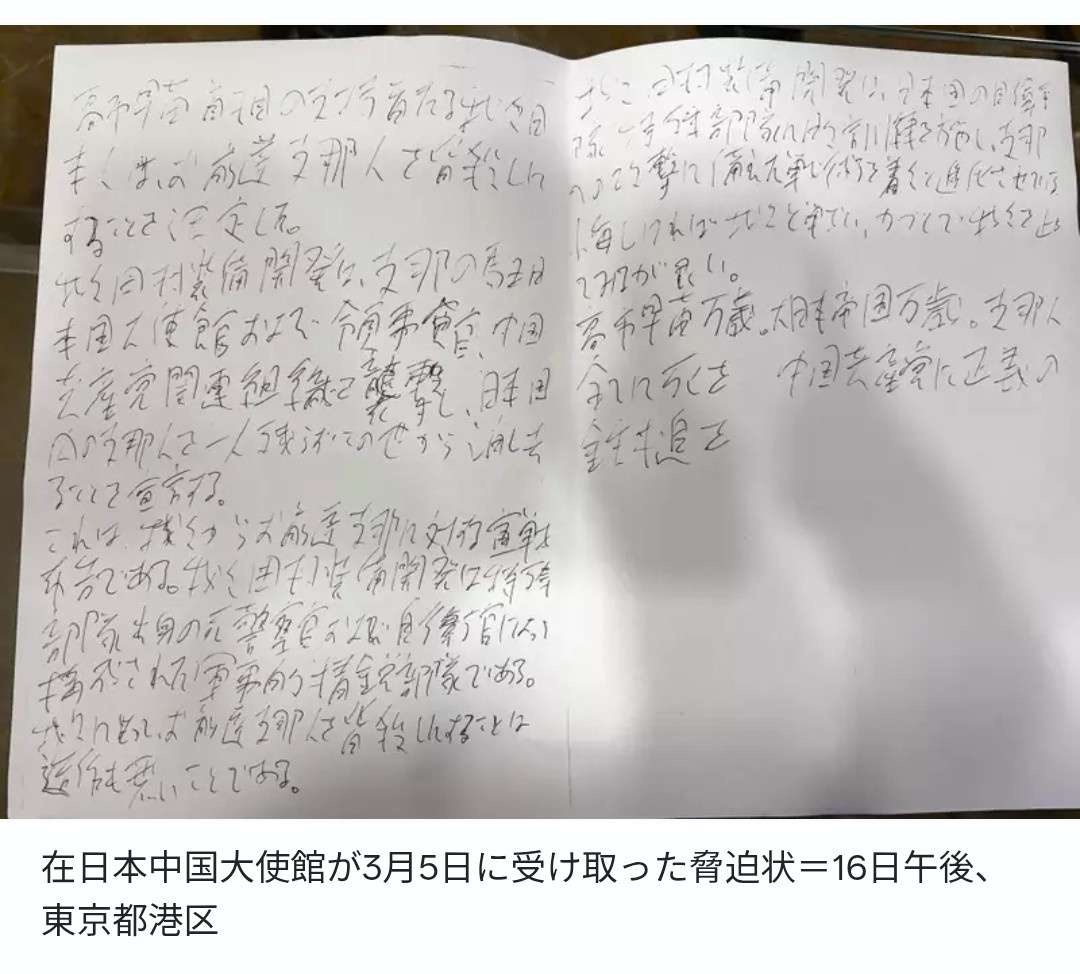 高市早苗首相の支持者たる我々日
本人は、お前達支那人を皆殺しに
することを決定した。
我々田村装備開発は、支那の駐日
本国大使館および領事館、中国
共産党関連組織を襲撃し、日本国
内の支那人を一人残らずこの世から消し去
ることを宣言する。
これは、我々からお前達支那に対する宣戦
布告である。我々田村装備開発は特殊
部隊出身の元警察官および自衛官によって
構成された軍事的精鋭部隊である。
我々にとってお前達支那人を皆殺しにすることは
造作も無いことである。
田村装備開発は、日本国の自衛
隊、特殊部隊に訓練を施し、支那
への攻撃に備えた戦術を着々と進化させている
悔しければ我々と戦い、力づくで我々を止め
てみるが良い。
高市早苗万歳。大日本帝国万歳。支那人
全てに死を 中国共産党に正義の
在日本中国大使館が3月5日に受け取った脅迫状＝16日午後、
東京都港区